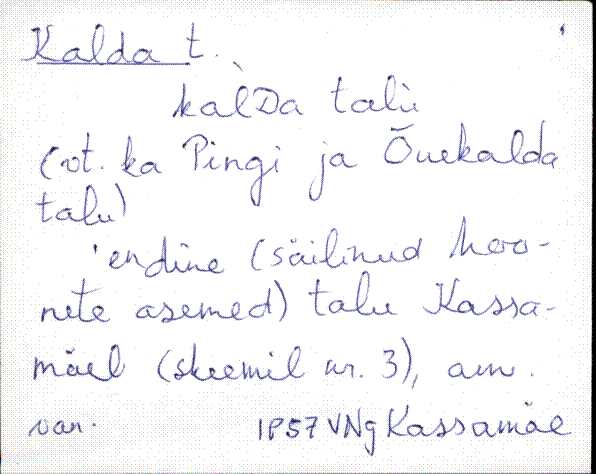 Kalda t.
kal̀Da talu
(vt. ka Pingi ja Õuekalda
talu)
'endine (säilinud hoo-
nete asemed) talu Kassa-
mäel (skeemil nr. 3), am.
van. IP57 VNg Kassamäe